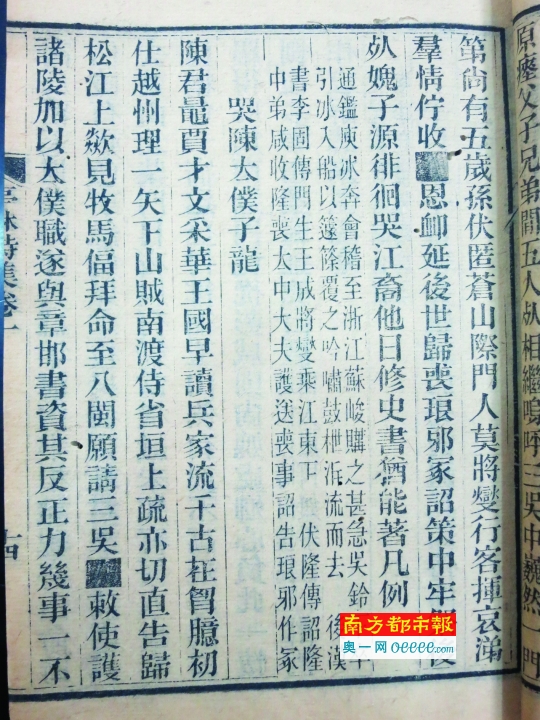 原瘞父子兄弟間五人死相繼嗚呼三吳中巍然一門
第尚有五歲孫伏匿蒼山際門人莫將燮行客揮哀涕
羣情佇收恩卹延後世歸喪琅邪冢詔策中牢後
死媿子源徘徊哭江裔他日修史書猶能著凡例
通鑑庾冰奔會稽至浙江蘇峻購之甚急吳鈴
引冰入船以蘧蒢覆之吟嘯鼓枻泝流而去 後漢
書李固傳門生王成將燮乘江東下 伏隆傳詔隆
中弟咸收隆喪太中大夫護送喪事詔告琅邪作冢
哭陳太僕子龍
陳君鼂賈才文采華王國早讀兵家流千古在胷臆初
仕越州理一矢下山賊南渡侍省垣上疏亦切直告歸
松江上欻見牧馬偪拜命至八閩願請三吳敕使護
諸陵加以太僕職遂與章邯書資其反正力幾事一不
亭林詩集卷一
十四
南方都市報
奥一网oeeee.com